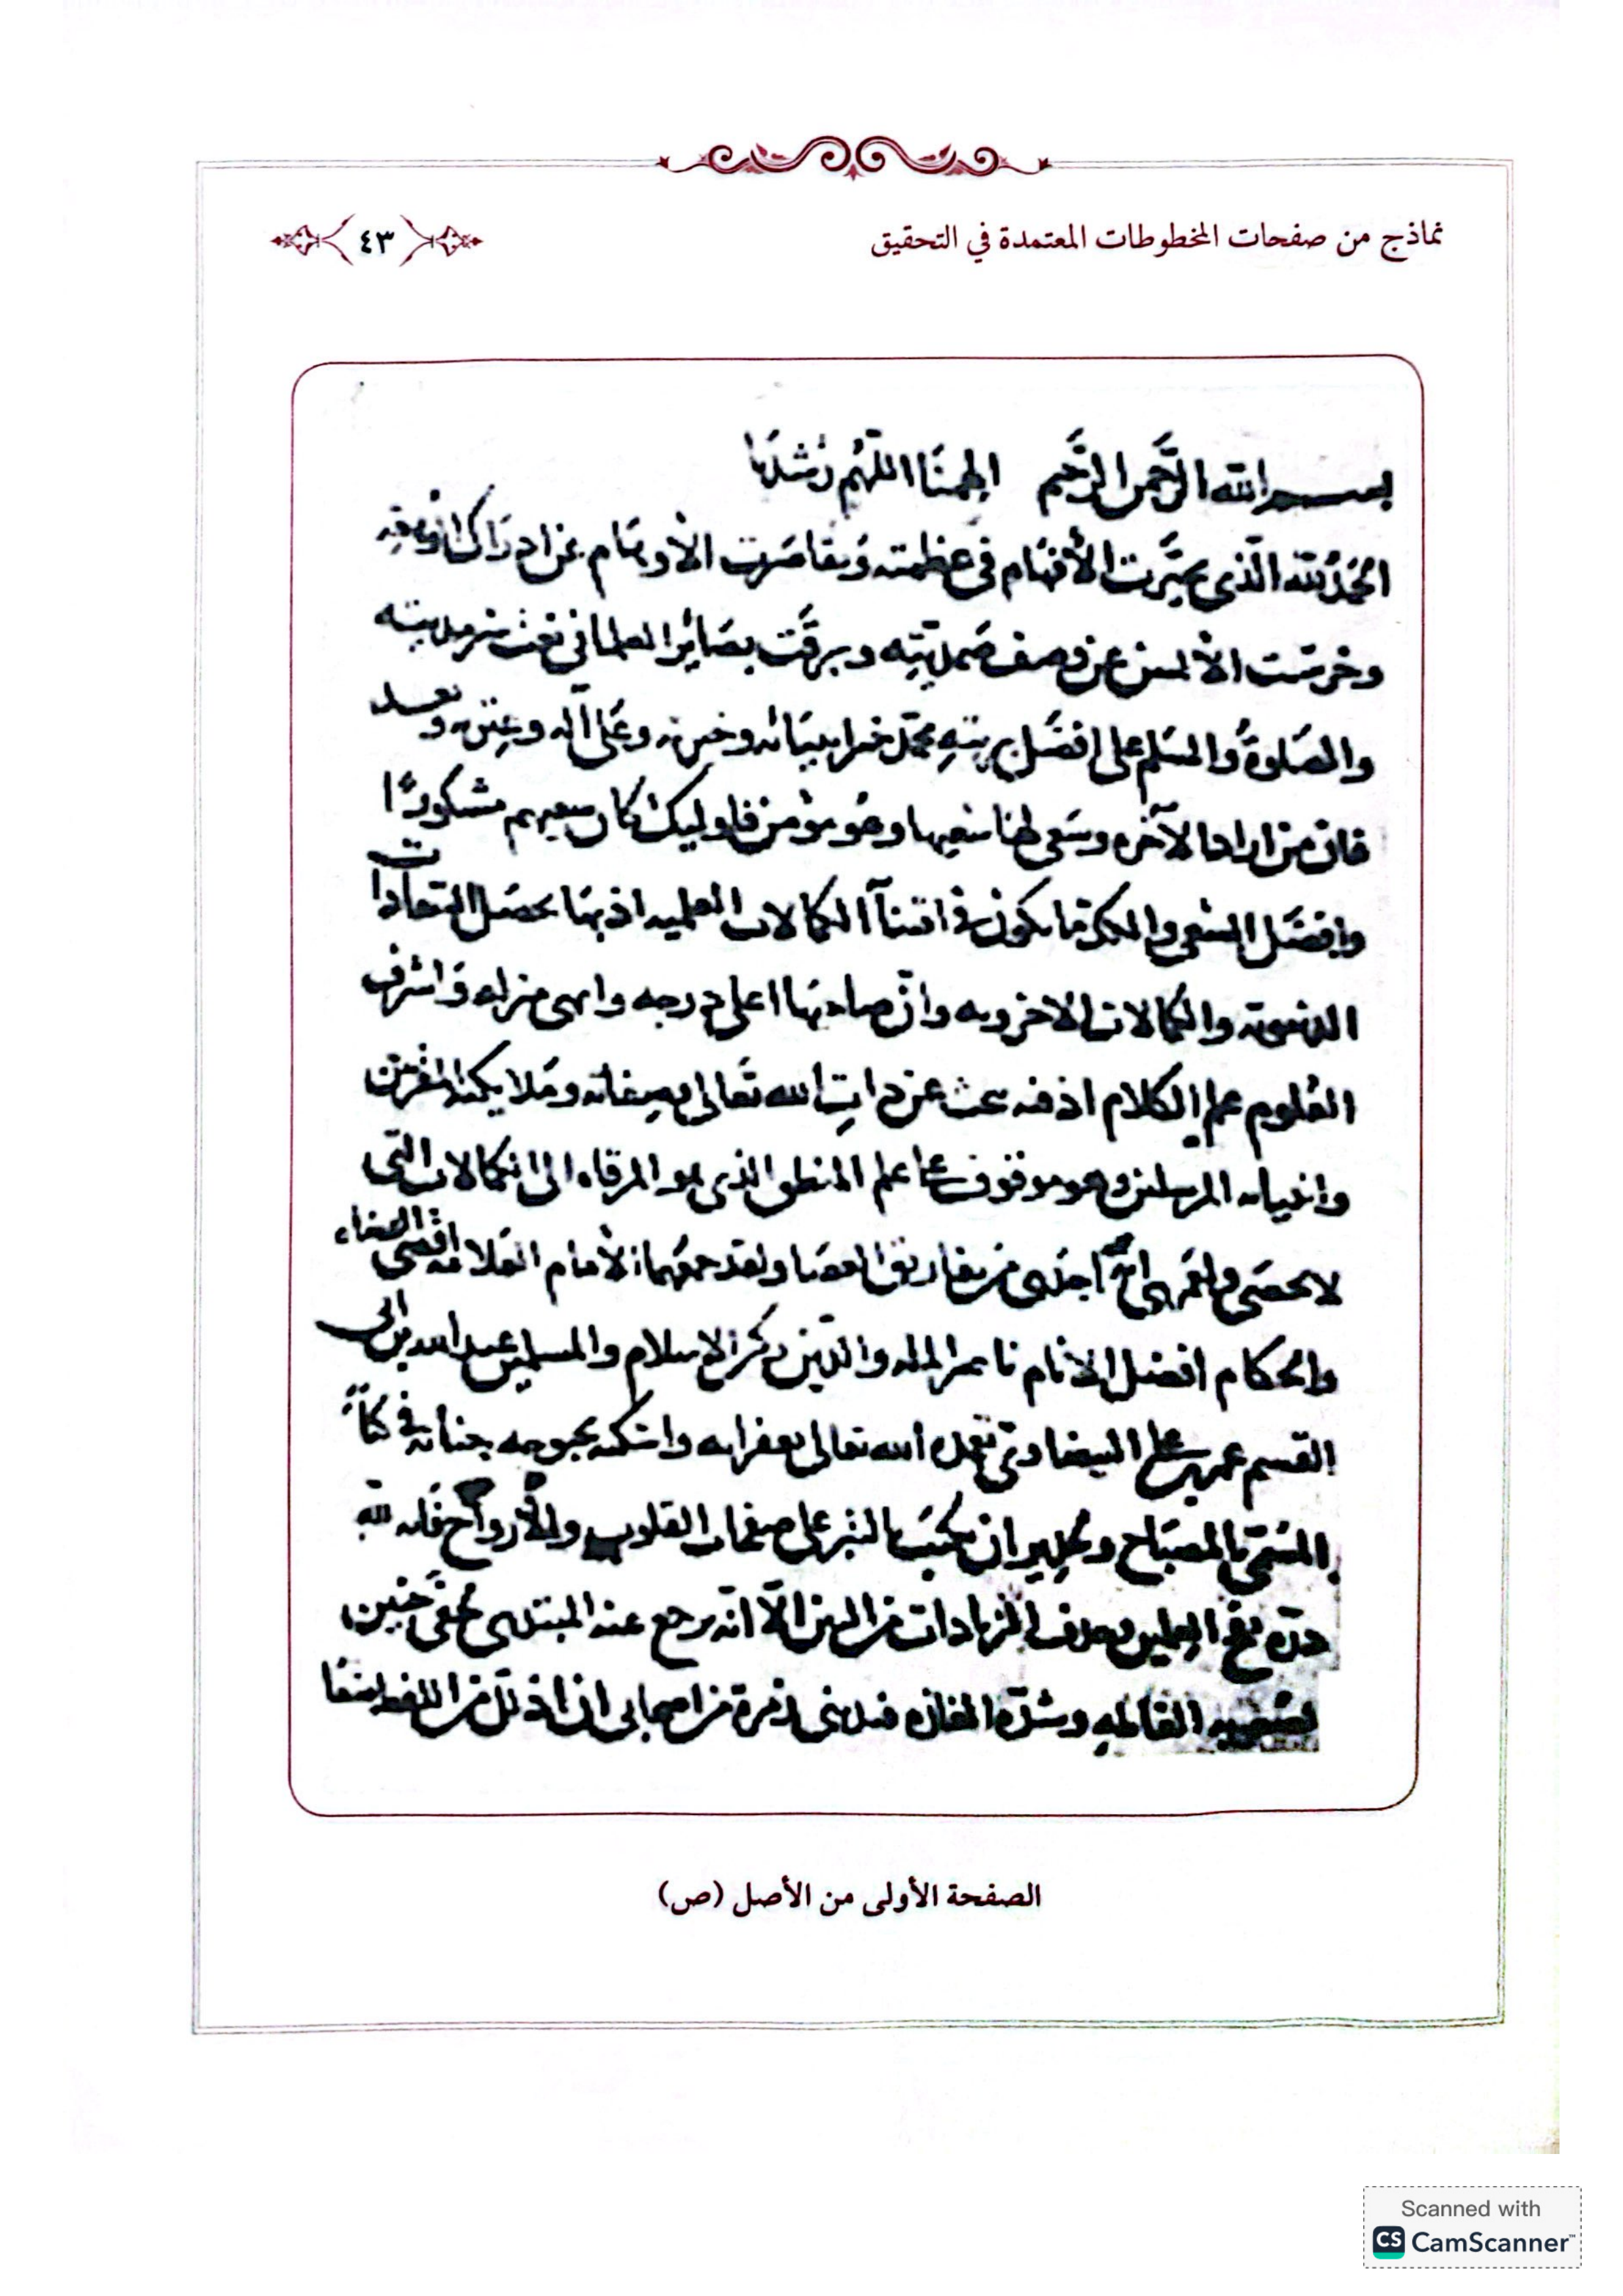 نماذج من صفحات المخطوطات المعتمدة في التحقيق
٤٣
بسم الله الرَّحمن الرَّحيم الهمنَا اللّهُم رُشدَنا
الحَمدُ لله الّذي تحيَّرت الأفهَام في عَظمته وَتقاصَرت الأوهَام عن ادرَاك
وخرسَت الألسن عن وصف صَمديّتِه وبرقَت بصَائِر العلما في نعت سرمديته
والصَلوةُ والسَلم على افضَل بريتهِ محمّد خير انبيَائه وعَلى آله وعِترته وَبعد
فان من اراد الآخره وسَعى لهَا سَعيها وهُو مؤمن فاوليك كان سعيهم مشكورًا
وافضَل السَعي ما يكون في اقتنآ الكمالات العلميه اذ بهَا تحصَل السَعادات
الدنيويه والكمالات الاخرويه وانّ صاحبهَا اعلى درجه واسمى منزله وَاشرف
العُلوم علم الكلام اذ فيه يبحث عن ذاتِ الله تعَالى وصِفاته ومَلايكته المقربين
وانبيائه المرسلين وهو موقوف على علم المنطق الذي هو المرقاه الى الكمالات التي
لا تحصَى ولعَمري انّه اجدى من تفاريق العصَا ولقد جمعَهما الأمام العَلامه اقضى القضاه
والحكام افضل الانام ناصر المله والدّين ركن الاسلام والمسلمين عبد الله بن ابى
القسم عمر بن على البيضاوى تغمده الله تعالى بغفرانه واسكنه بحبوحه جنانه في كتابه
المسَمى بالمصبَاح وجدير ان يكتبَ بالتبر على صفحات القلوب والأرواح فلله
درّه العلمين وحذف الزيادات من البين الّا انّه يرجع عنه المبتدى بخفى حُنين
القاله وشدّه المغازه زمرة من اصحابى ان اذلل من اللفظ
الصفحة الأولى من الأصل (ص)
Scanned with
CS CamScanner™